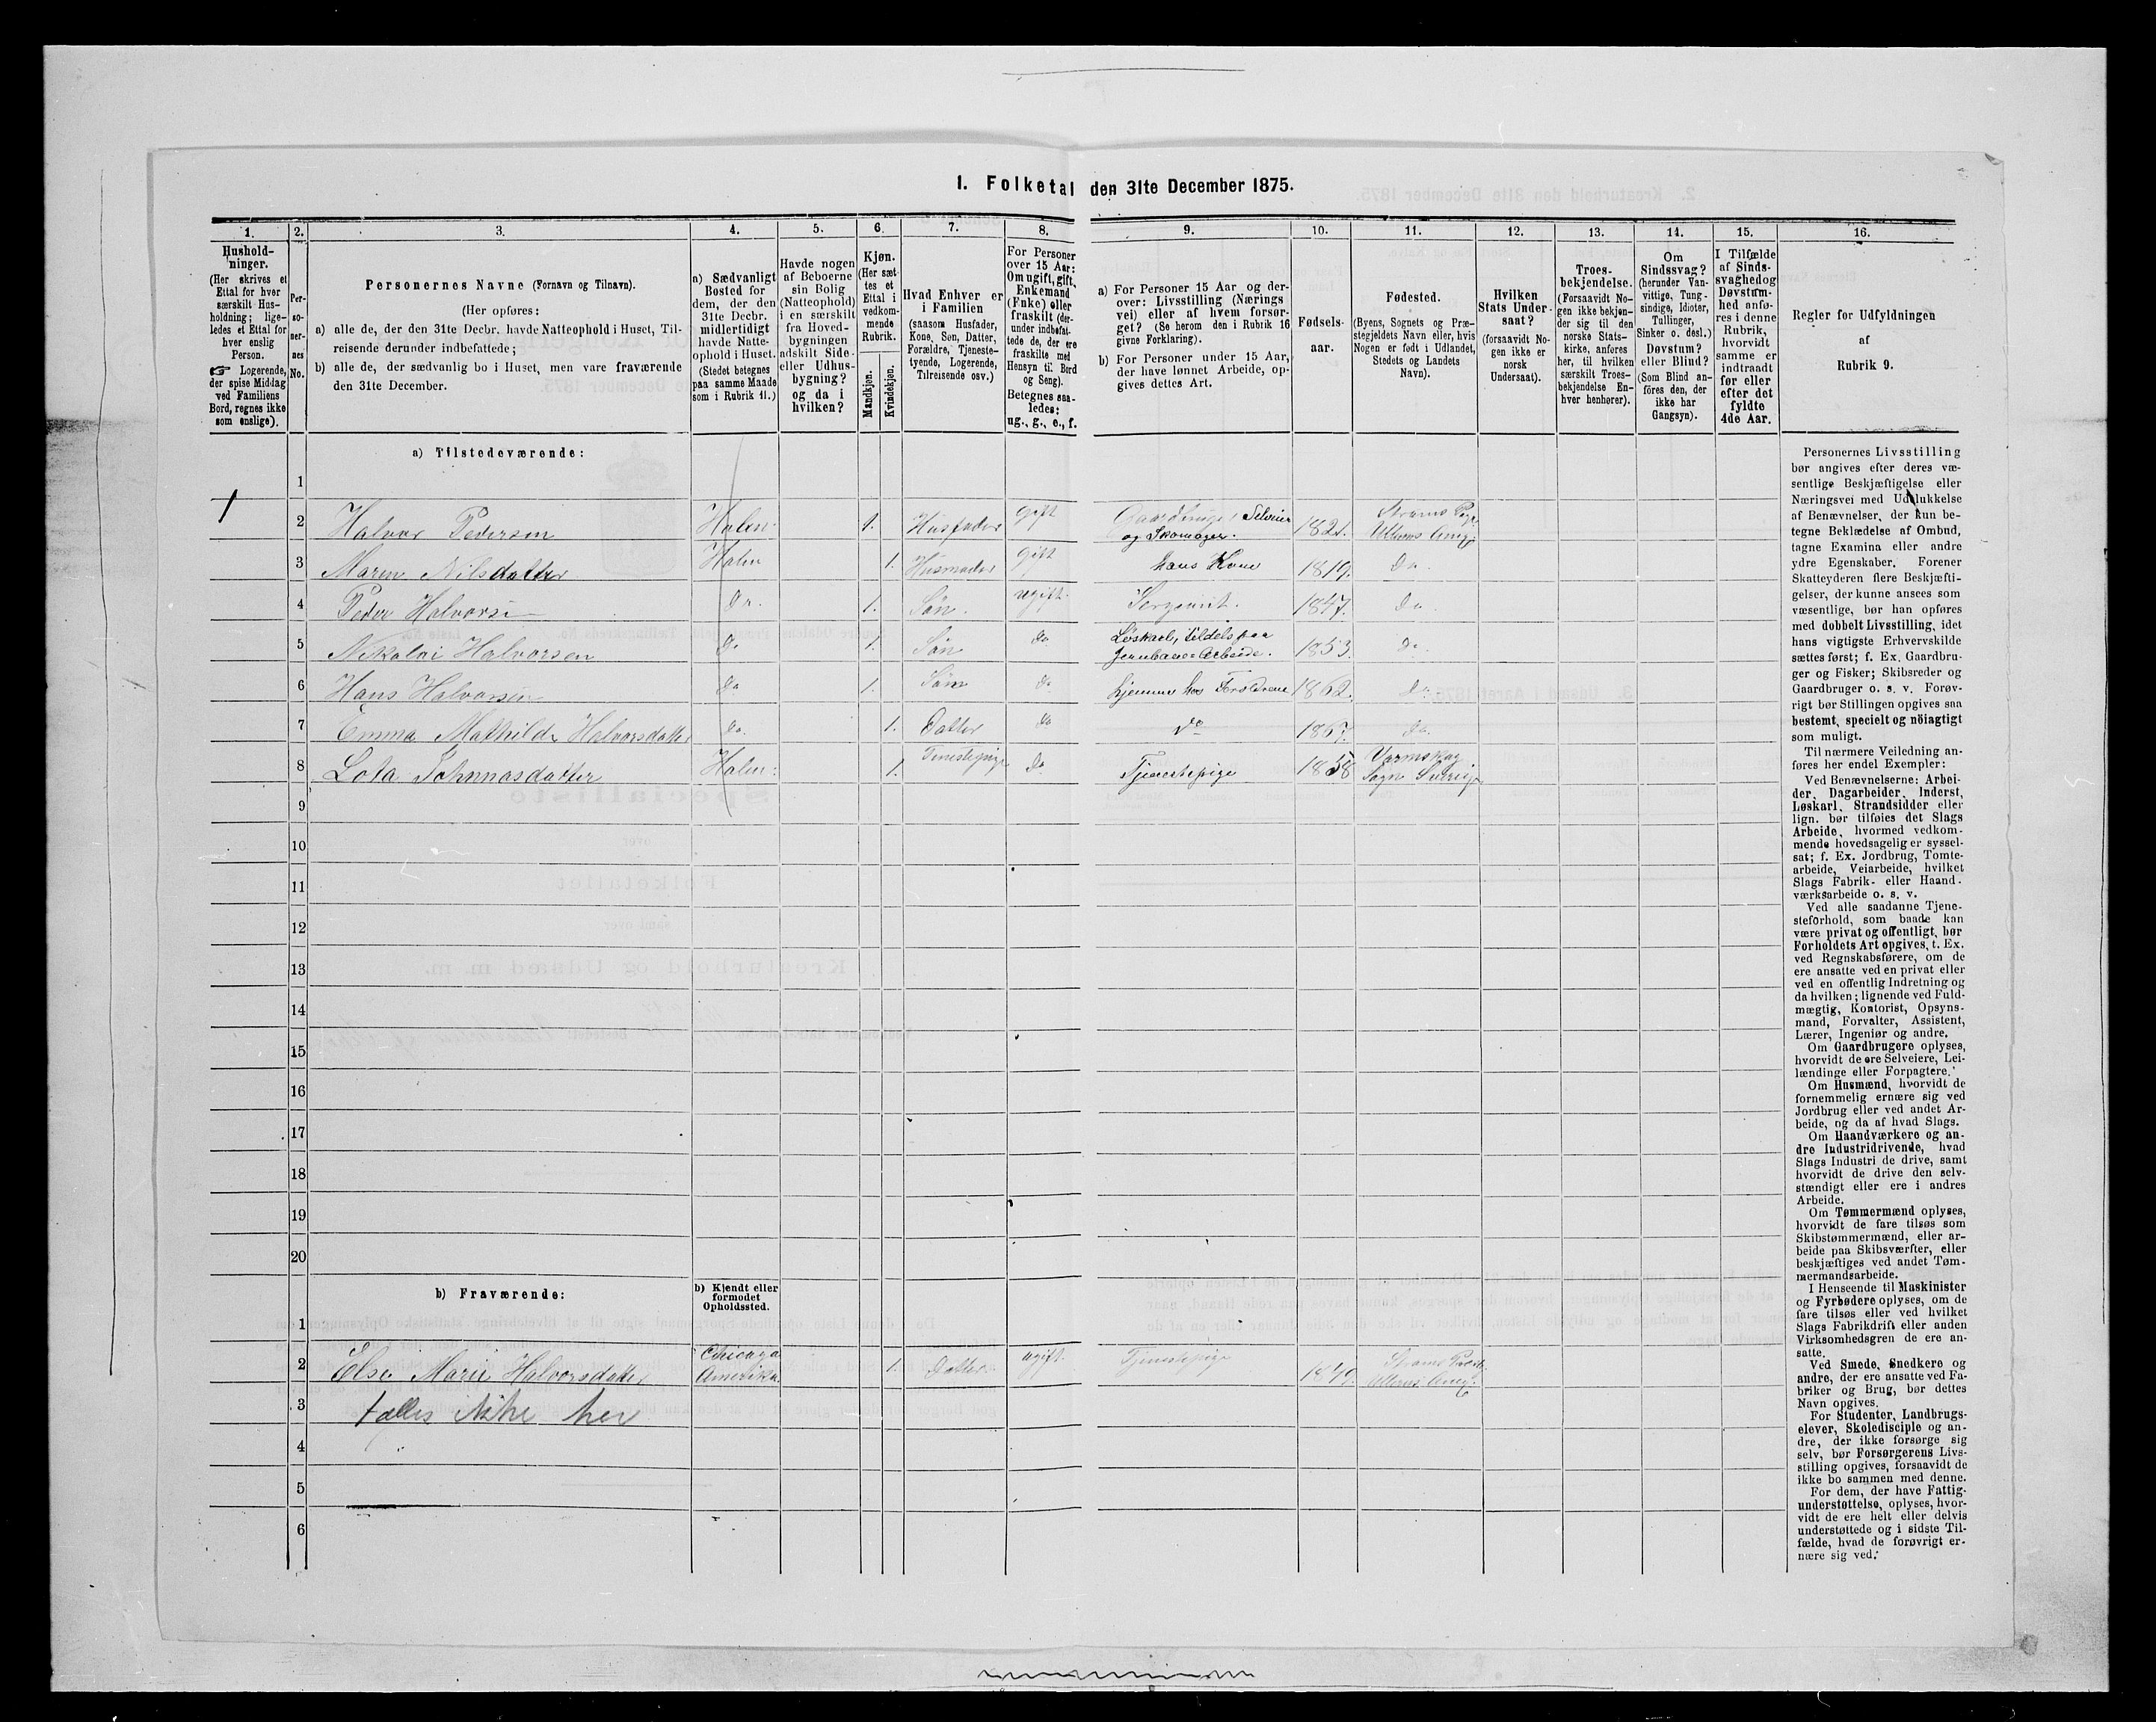 1. Folketal den 31te December 1875.
1.
2.
3.
4.
5.
6.
7.
8.
9.
10.
11.
12.
13.
14.
15.
16.
Hushold-
ninger.
(Her skrives et
Ettal for hver
særskilt Hus-
holdning; lige-
ledes et Ettal for
hver enslig
Person.
☞ Logerende,
der spise Middag
ved Familiens
Bord, regnes ikke
som enslige).
Per-
so-
ner-
nes
No.
Personernes Navne (Fornavn og Tilnavn).
(Her opføres:
a) alle de, der den 31te Decbr. havde Natteophold i Huset, Til-
reisende derunder indbefattede;
b) alle de, der sædvanlig bo i Huset, men vare fraværende
den 31te December.
a) Sædvanligt
Bosted for
dem, der den
31te Decbr.
midlertidigt
havde Natte-
ophold i Huset.
(Stedet betegnes
paa samme Maade
som i Rubrik 11.)
Havde nogen
af Beboerne
sin Bolig
(Natteophold)
i en særskilt
fra Hoved-
bygningen
adskilt Side-
eller Udhus-
bygning?
og da i
hvilken?
Kjøn.
(Her sæt-
tes et
Ettal i
vedkom-
mende
Rubrik.
Mandkjøn.
Kvindekjøn.
Hvad Enhver er
i Familien
(saasom Husfader,
Kone, Søn, Datter,
Forældre, Tjeneste-
tyende, Logerende,
Tilreisende osv.)
For Personer
over 15 Aar:
Om ugift, gift,
Enkemand
(Enke) eller
fraskilt (der-
under indbefat-
tede de, der ere
fraskilte med
Hensyn til Bord
og Seng).
Betegnes saa-
ledes:
ug., g., e., f.
a) For Personer 15 Aar og der-
over: Livsstilling (Nærings
vei) eller af hvem forsør-
get? (Se herom den i Rubrik 16
givne Forklaring).
b) For Personer under 15 Aar,
der have lønnet Arbeide, op-
gives dettes Art.
Fødsels-
aar.
Fødested.
(Byens, Sognets og Præ-
stegjeldets Navn eller, hvis
Nogen er født i Udlandet,
Stedets og Landets
Navn).
Hvilken
Stats Under-
saat?
(forsaavidt No-
gen ikke er
norsk
Undersaat).
Troes-
bekjendelse.
(Forsaavidt No-
gen ikke bekjen-
der sig til den
norske Stats-
kirke, anføres
her, til hvilken
særskilt Troes-
bekjendelse En-
hver henhører).
Om
Sindssvag?
(herunder Van-
vittige, Tung-
sindige, Idioter,
Tullinger,
Sinker o. desl.)
Døvstum?
eller Blind?
(Som Blind an-
føres den, der
ikke har
Gangsyn).
I Tilfælde
af Sinds-
svaghed og
Døvstum-
hed anfø-
res i denne
Rubrik,
hvorvidt
samme er
indtraadt
før eller
efter det
fyldte
4de Aar.
Regler for Udfyldningen
af
Rubrik 9.
a) Tilstedeværende:
1
1
2 Halvor Pedersen Holen: 1. Husfader Gift Gaardbruger Selveier og Skomager. 1821. Strøms Pgj. Ullerns Ang.
3 Maren Nilsdatter Holen 1. Husmoder Gift hans Kone 1819. Do.
4 Peder Halvorsen Do. 1. Søn. ugift. 1847. Do.
5 Nikolai Halvorsen Do 1. Søn do Løskarl, tildels paa Jernbane Arbeide. 1853. Do.
6 Hans Halvorsen Do 1. Søn do hjemme hos Forældrene 1862. Do.
7 Emma Mathilde Halvorsdatter Do. 1. Datter do do 1867. Do.
8 Lota Johnnasdatter Holen: 1. Tjenestepige do Tjenestepige 1858 Sogn Sverige
9
10
11
12
13
14
15
16
17
18
19
20
b) Fraværende:
b) Kjendt eller
formodet
Opholdssted.
1
2 Else Marie Halvorsdatter Chicago Amerika. 1. Datter. ugift. Tjenestepige 1849. Strøms Præst. Ullerns
3 tælles ikke her
4
5
6
Personernes Livsstilling
bør angives efter deres væ-
sentlige Beskjæftigelse eller
Næringsvei med Udelukkelse
af Benævnelser, der kun be-
tegne Beklædelse af Ombud,
tagne Examina eller andre
ydre Egenskaber. Forener
Skatteyderen flere Beskjæfti-
gelser, der kunne ansees som
væsentlige, bør han opføres
med dobbelt Livsstilling, idet
hans vigtigste Erhvervskilde
sættes først; f. Ex. Gaardbru-
ger og Fisker; Skibsreder og
Gaardbruger o. s. v. Forøv-
rigt bør Stillingen opgives saa
bestemt, specielt og nöiagtigt
som muligt.
Til nærmere Veiledning an-
føres her endel Exempler:
Ved Benævnelserne: Arbei-
der, Dagarbeider, Inderst,
Løskarl, Strandsidder eller
lign. bør tilføies det Slags
Arbeide, hvormed vedkom-
mende hovedsagelig er syssel-
sat; f. Ex. Jordbrug, Tomte-
arbeide, Veiarbeide, hvilket
Slags Fabrik- eller Haand-
værksarbeide o. s. v.
Ved alle saadanne Tjene-
steforhold, som baade kan
være privat og offentligt, bør
Forholdets Art opgives, t. Ex.
ved Regnskabsførere, om de
ere ansatte ved en privat eller
ved en offentlig Indretning og
da hvilken; lignende ved Fuld-
mægtig, Kontorist, Opsyns-
mand, Forvalter, Assistent,
Lærer, Ingeniør og andre.
Om Gaardbrugere oplyses,
hvorvidt de ere Selveiere, Lei-
lændinge eller Forpagtere.
Om Husmænd, hvorvidt de
fornemmelig ernære sig ved
Jordbrug eller ved andet Ar-
beide, og da af hvad Slags.
Om Haandværkere og an-
dre Industridrivende, hvad
Slags Industri de drive, samt
hvorvidt de drive den selv-
stændigt eller ere i andres
Arbeide.
Om Tømmermænd oplyses,
hvorvidt de fare tilsøs som
Skibstømmermænd, eller ar-
beide paa Skibsværfter, eller
beskjæftiges ved andet Tøm-
mermandsarbeide.
I Henseende til Maskinister
og Fyrbødere oplyses, om de
fare tilsøs eller ved hvilket
Slags Fabrikdrift eller anden
Virksomhedsgren de ere an-
satte.
Ved Smede, Snedkere og
andre, der ere ansatte ved Fa-
briker og Brug, bør dettes
Navn opgives.
For Studenter, Landbrugs-
elever, Skoledisciple og an-
dre, der ikke forsørge sig
selv, bør Forsørgerens Livs-
stilling opgives, forsaavidt de
ikke bo sammen med denne.
For dem, der have Fattig-
understøttelse, oplyses, hvor-
vidt de ere helt eller delvis
understøttede og i sidste Til-
fælde, hvad de forøvrigt er-
nære sig ved.